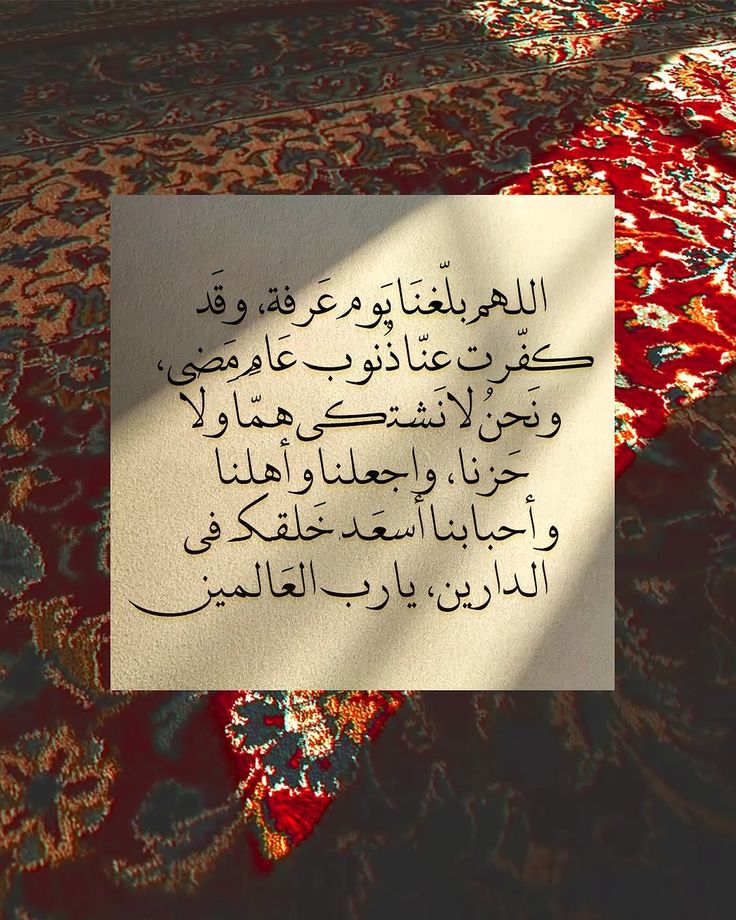 اللهم بلّغنَا يَوم عَرفة، وقَد
كفّرت عنّا ذُنوب عَامٍ مَضى،
ونَحنُ لا نَشتكى همّا ولا
حَزنا، واجعلنا وأهلنا
وأحبابنا أسعَد خَلقك فى
الدارين، يارب العَالمين